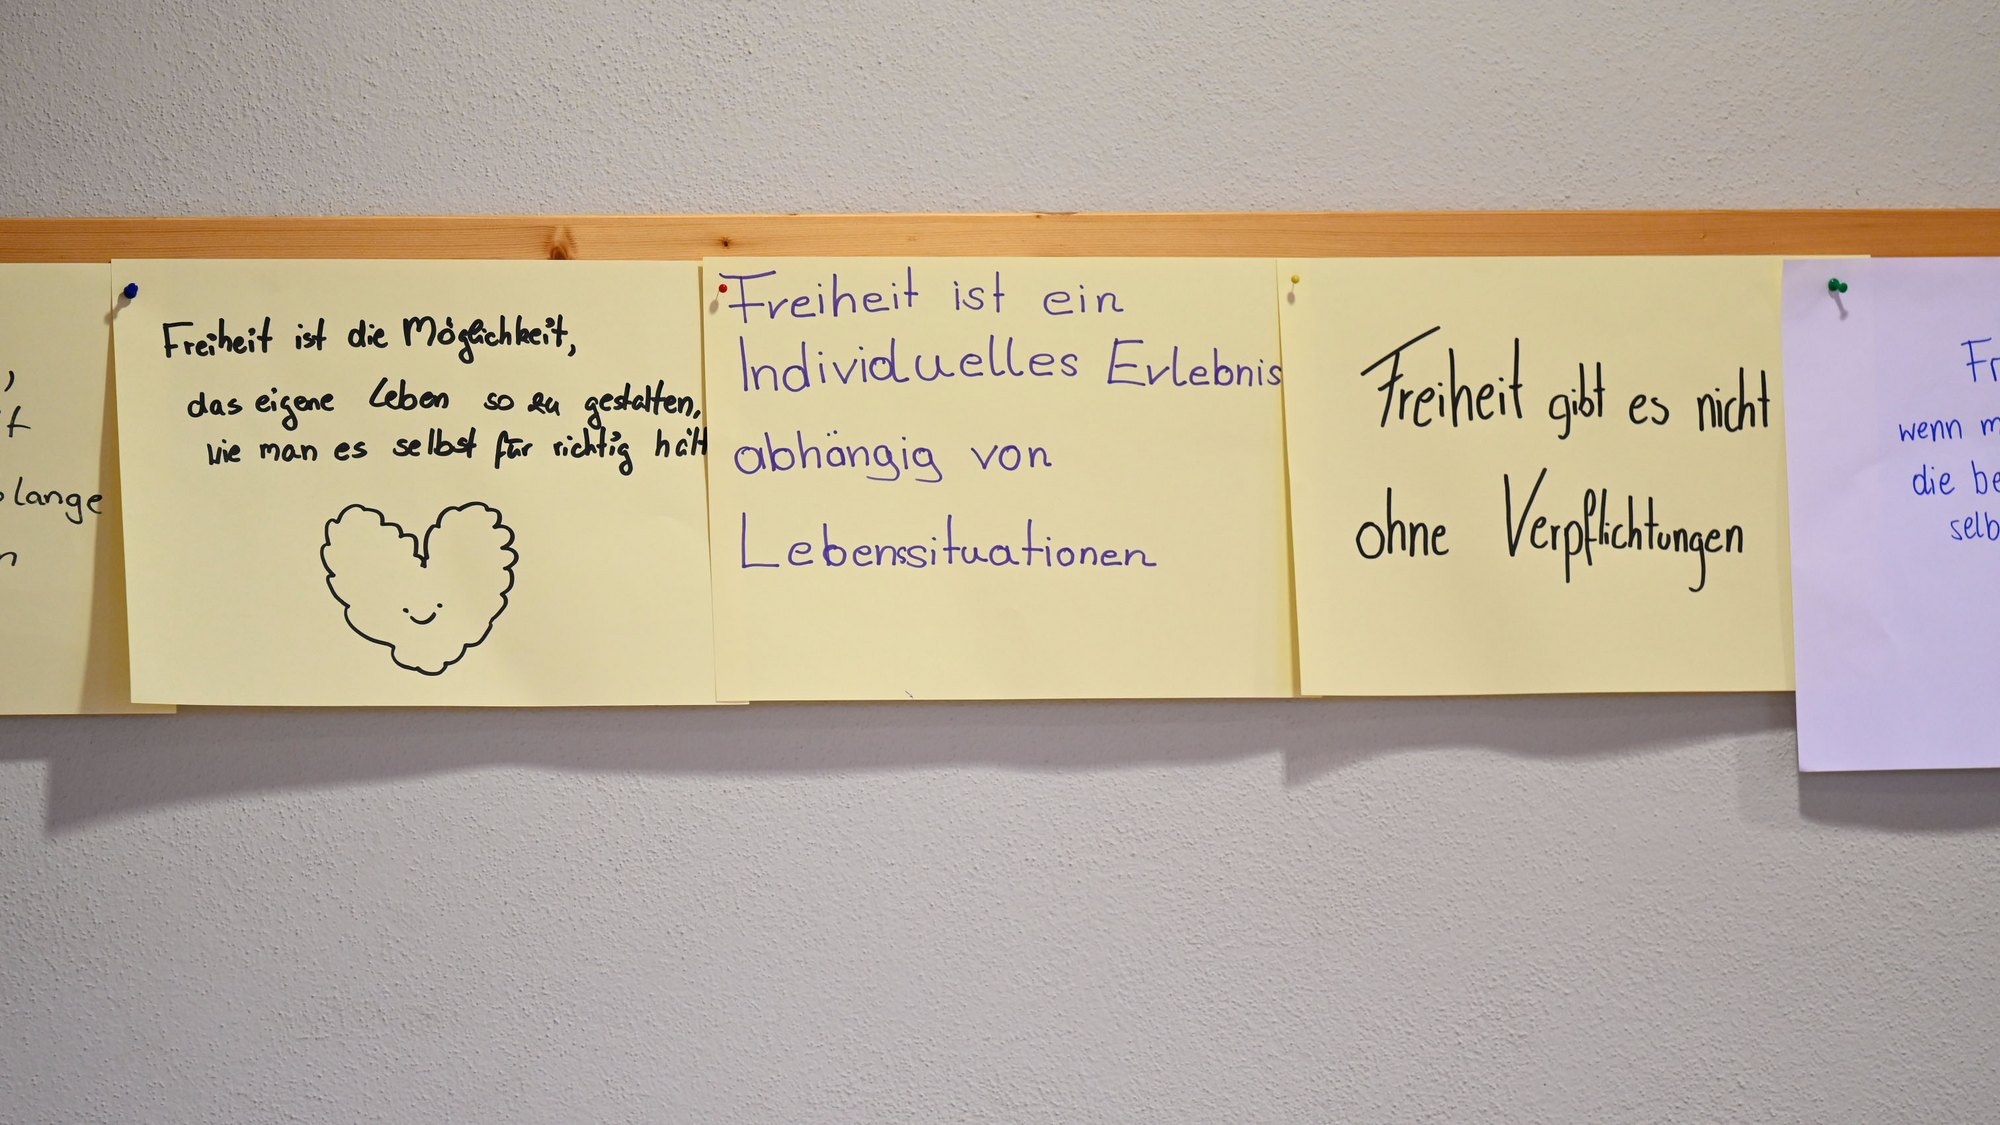 lange
Freiheit ist die Möglichkeit,
das eigene Leben so zu gestalten,
wie man es selbst für richtig hält
Freiheit ist ein
Individuelles Erlebnis
abhängig von
Lebenssituationen
Freiheit gibt es nicht
ohne Verpflichtungen
wenn
die